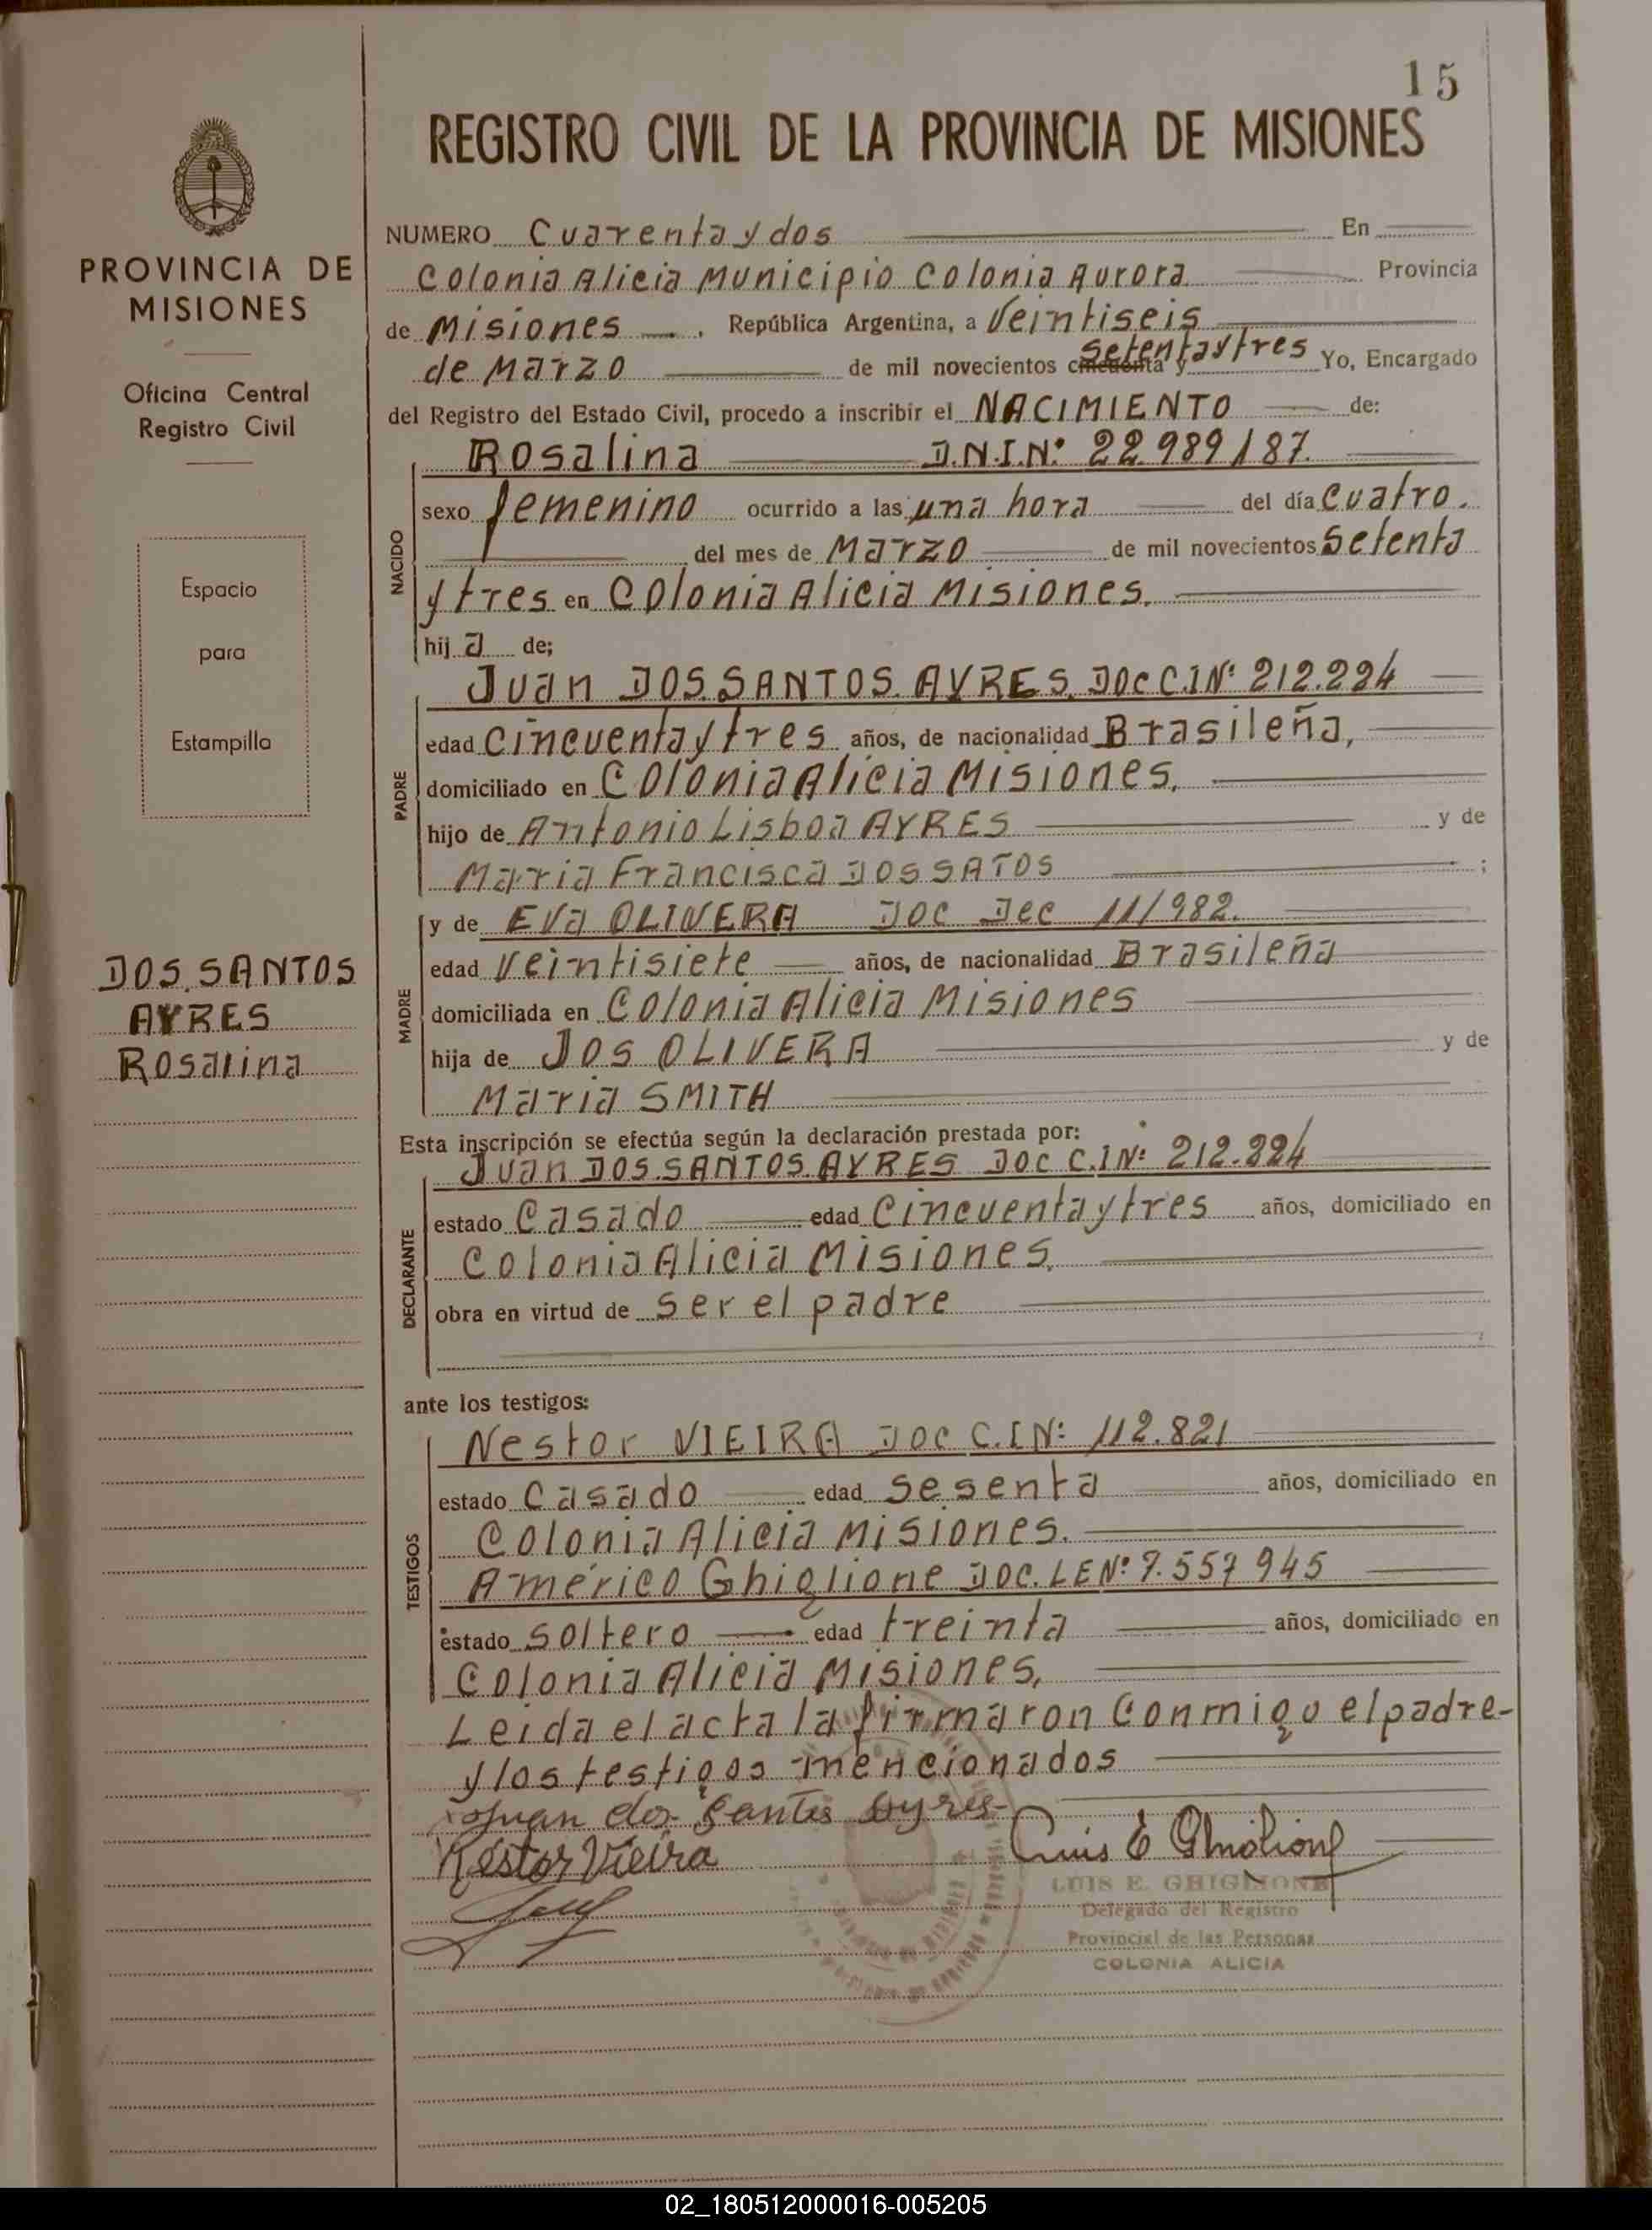 15
REGISTRO CIVIL DE LA PROVINCIA DE MISIONES
PROVINCIA DE
MISIONES
Oficina Central
Registro Civil
Espacio
para
Estampilla
DOS SANTOS
AYRES
Rosalina
NUMERO Cuarenta y dos En
Colonia Alicia Municipio Colonia Aurora. Provincia
de Misiones, República Argentina, a Veintiseis
de Marzo de mil novecientos cincuenta y setenta y tres Yo, Encargado
del Registro del Estado Civil, procedo a inscribir el NACIMIENTO de:
NACIDO
Rosalina D.N.I.Nº 22.989187.
sexo femenino ocurrido a las una hora del día Cuatro.
del mes de Marzo de mil novecientos Setenta
y tres en Colonia Alicia Misiones.
hij a de;
PADRE
Juan DOS SANTOS AYRES, Doc C.I Nº 212.224
edad Cincuenta y tres años, de nacionalidad Brasileña,
domiciliado en Colonia Alicia Misiones.
hijo de Antonio Lisboa AYRES y de
Maria Francisca DOS SATOS ;
MADRE
y de Eva OLIVERA DOC Dec 11/982.
edad Veintisiete años, de nacionalidad Brasileña
domiciliada en Colonia Alicia Misiones
hija de Jos OLIVERA y de
Maria SMITH
Esta inscripción se efectúa según la declaración prestada por:
DECLARANTE
Juan DOS SANTOS AYRES DOC C.I Nº 212.224
estado Casado edad Cincuenta y tres años, domiciliado en
Colonia Alicia Misiones.
obra en virtud de Ser el padre
ante los testigos:
TESTIGOS
Nestor VIEIRA DOC C.I Nº: 112.821
estado Casado edad Sesenta años, domiciliado en
Colonia Alicia Misiones.
Américo Ghiglione DOC. LE Nº 7.557 945
estado Soltero edad treinta años, domiciliado en
Colonia Alicia Misiones,
Leida el acta la firmaron Conmigo el padre-
y los testigos mencionados
Juan dos Santos Ayres
Néstor Vieira
Luis E Ghiglione
LUIS E. GHIGLIONE
Delegado del Registro
Provincial de las Personas
COLONIA ALICIA
02_180512000016-005205